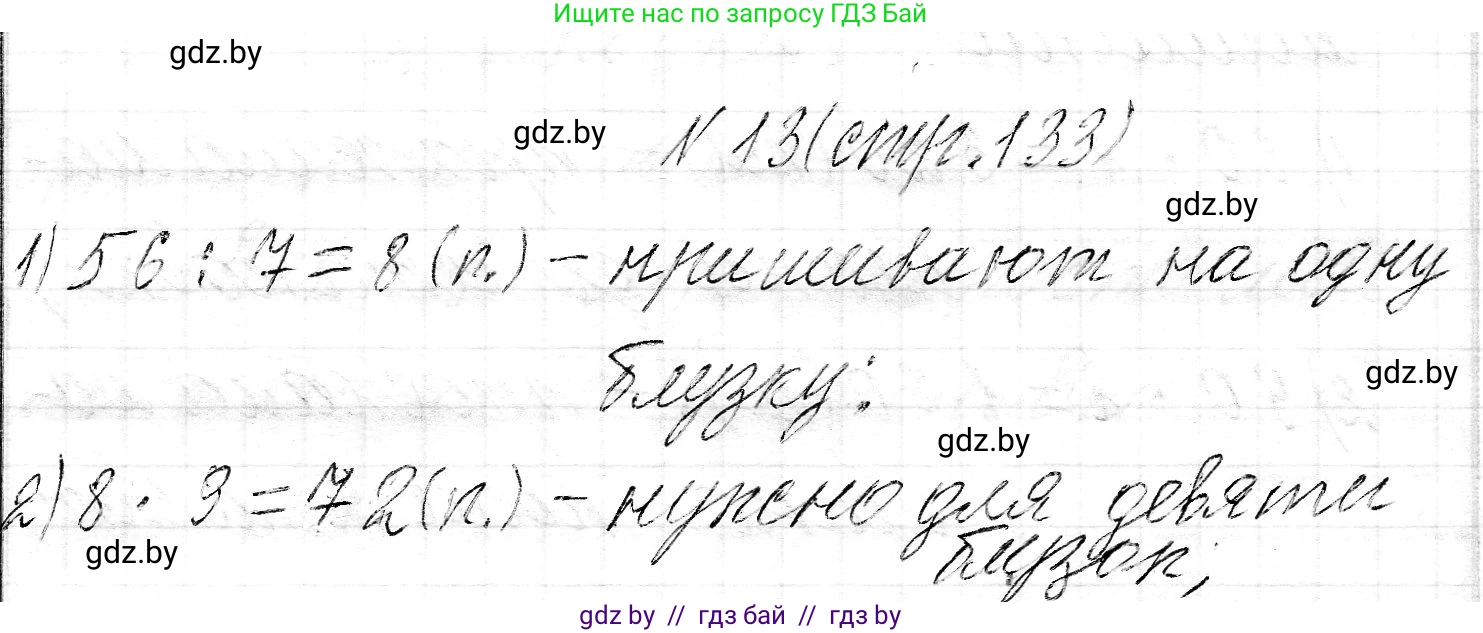 Ищите нас по запросу ГДЗ Бай
gdz.by
gdz.by
N 13 (стр. 133)
gdz.by
1) 56 : 7 = 8 (п.) - пришивают на одну
блузку;
gdz.by
gdz.by
2) 8 · 9 = 72 (п.) - нужно для девяти
блузок;
gdz.by
gdz by // гдз бай // гдз by